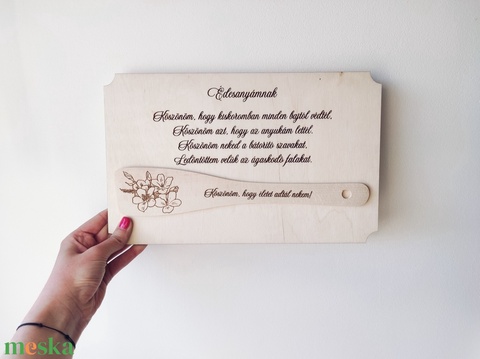 Édesanyámnak
Köszönöm, hogy kiskoromban minden bajtól védtél,
Köszönöm azt, hogy az anyukám lettél.
Köszönöm neked a bátorító szavakat,
Ledöntöttem velük az ágaskodó falakat.
Köszönöm, hogy életet adtál nekem!
meska